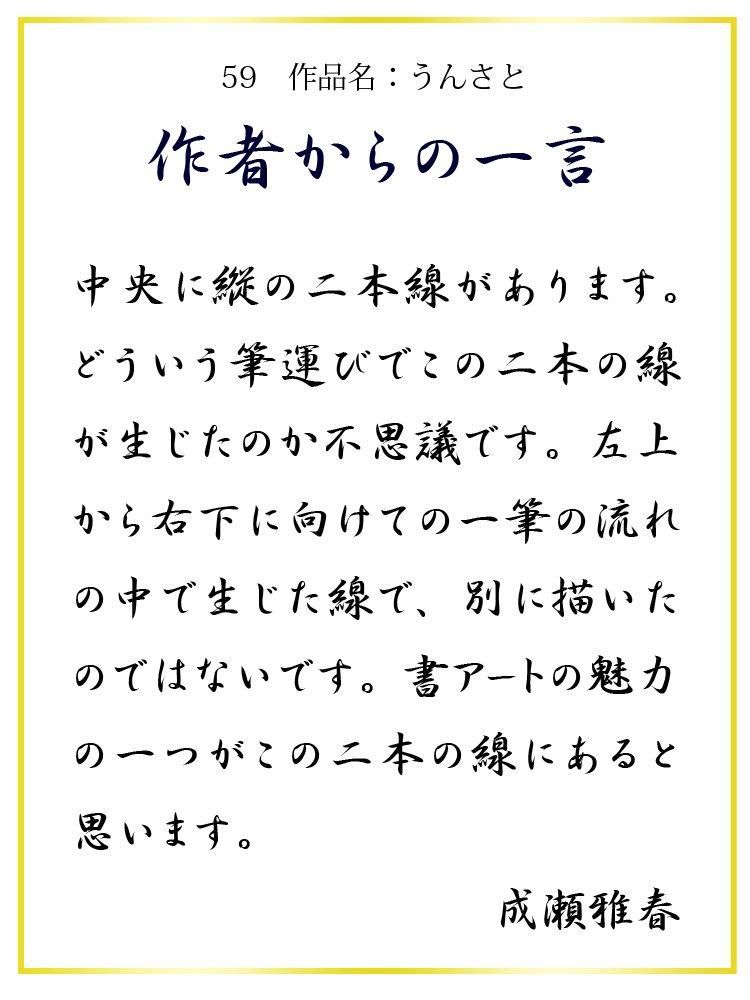 59　作品名：うんさと
作者からの一言
中央に縦の二本線があります。
どういう筆運びでこの二本の線
が生じたのか不思議です。左上
から右下に向けての一筆の流れ
の中で生じた線で、別に描いた
のではないです。書アートの魅力
の一つがこの二本の線にあると
思います。
成瀬雅春